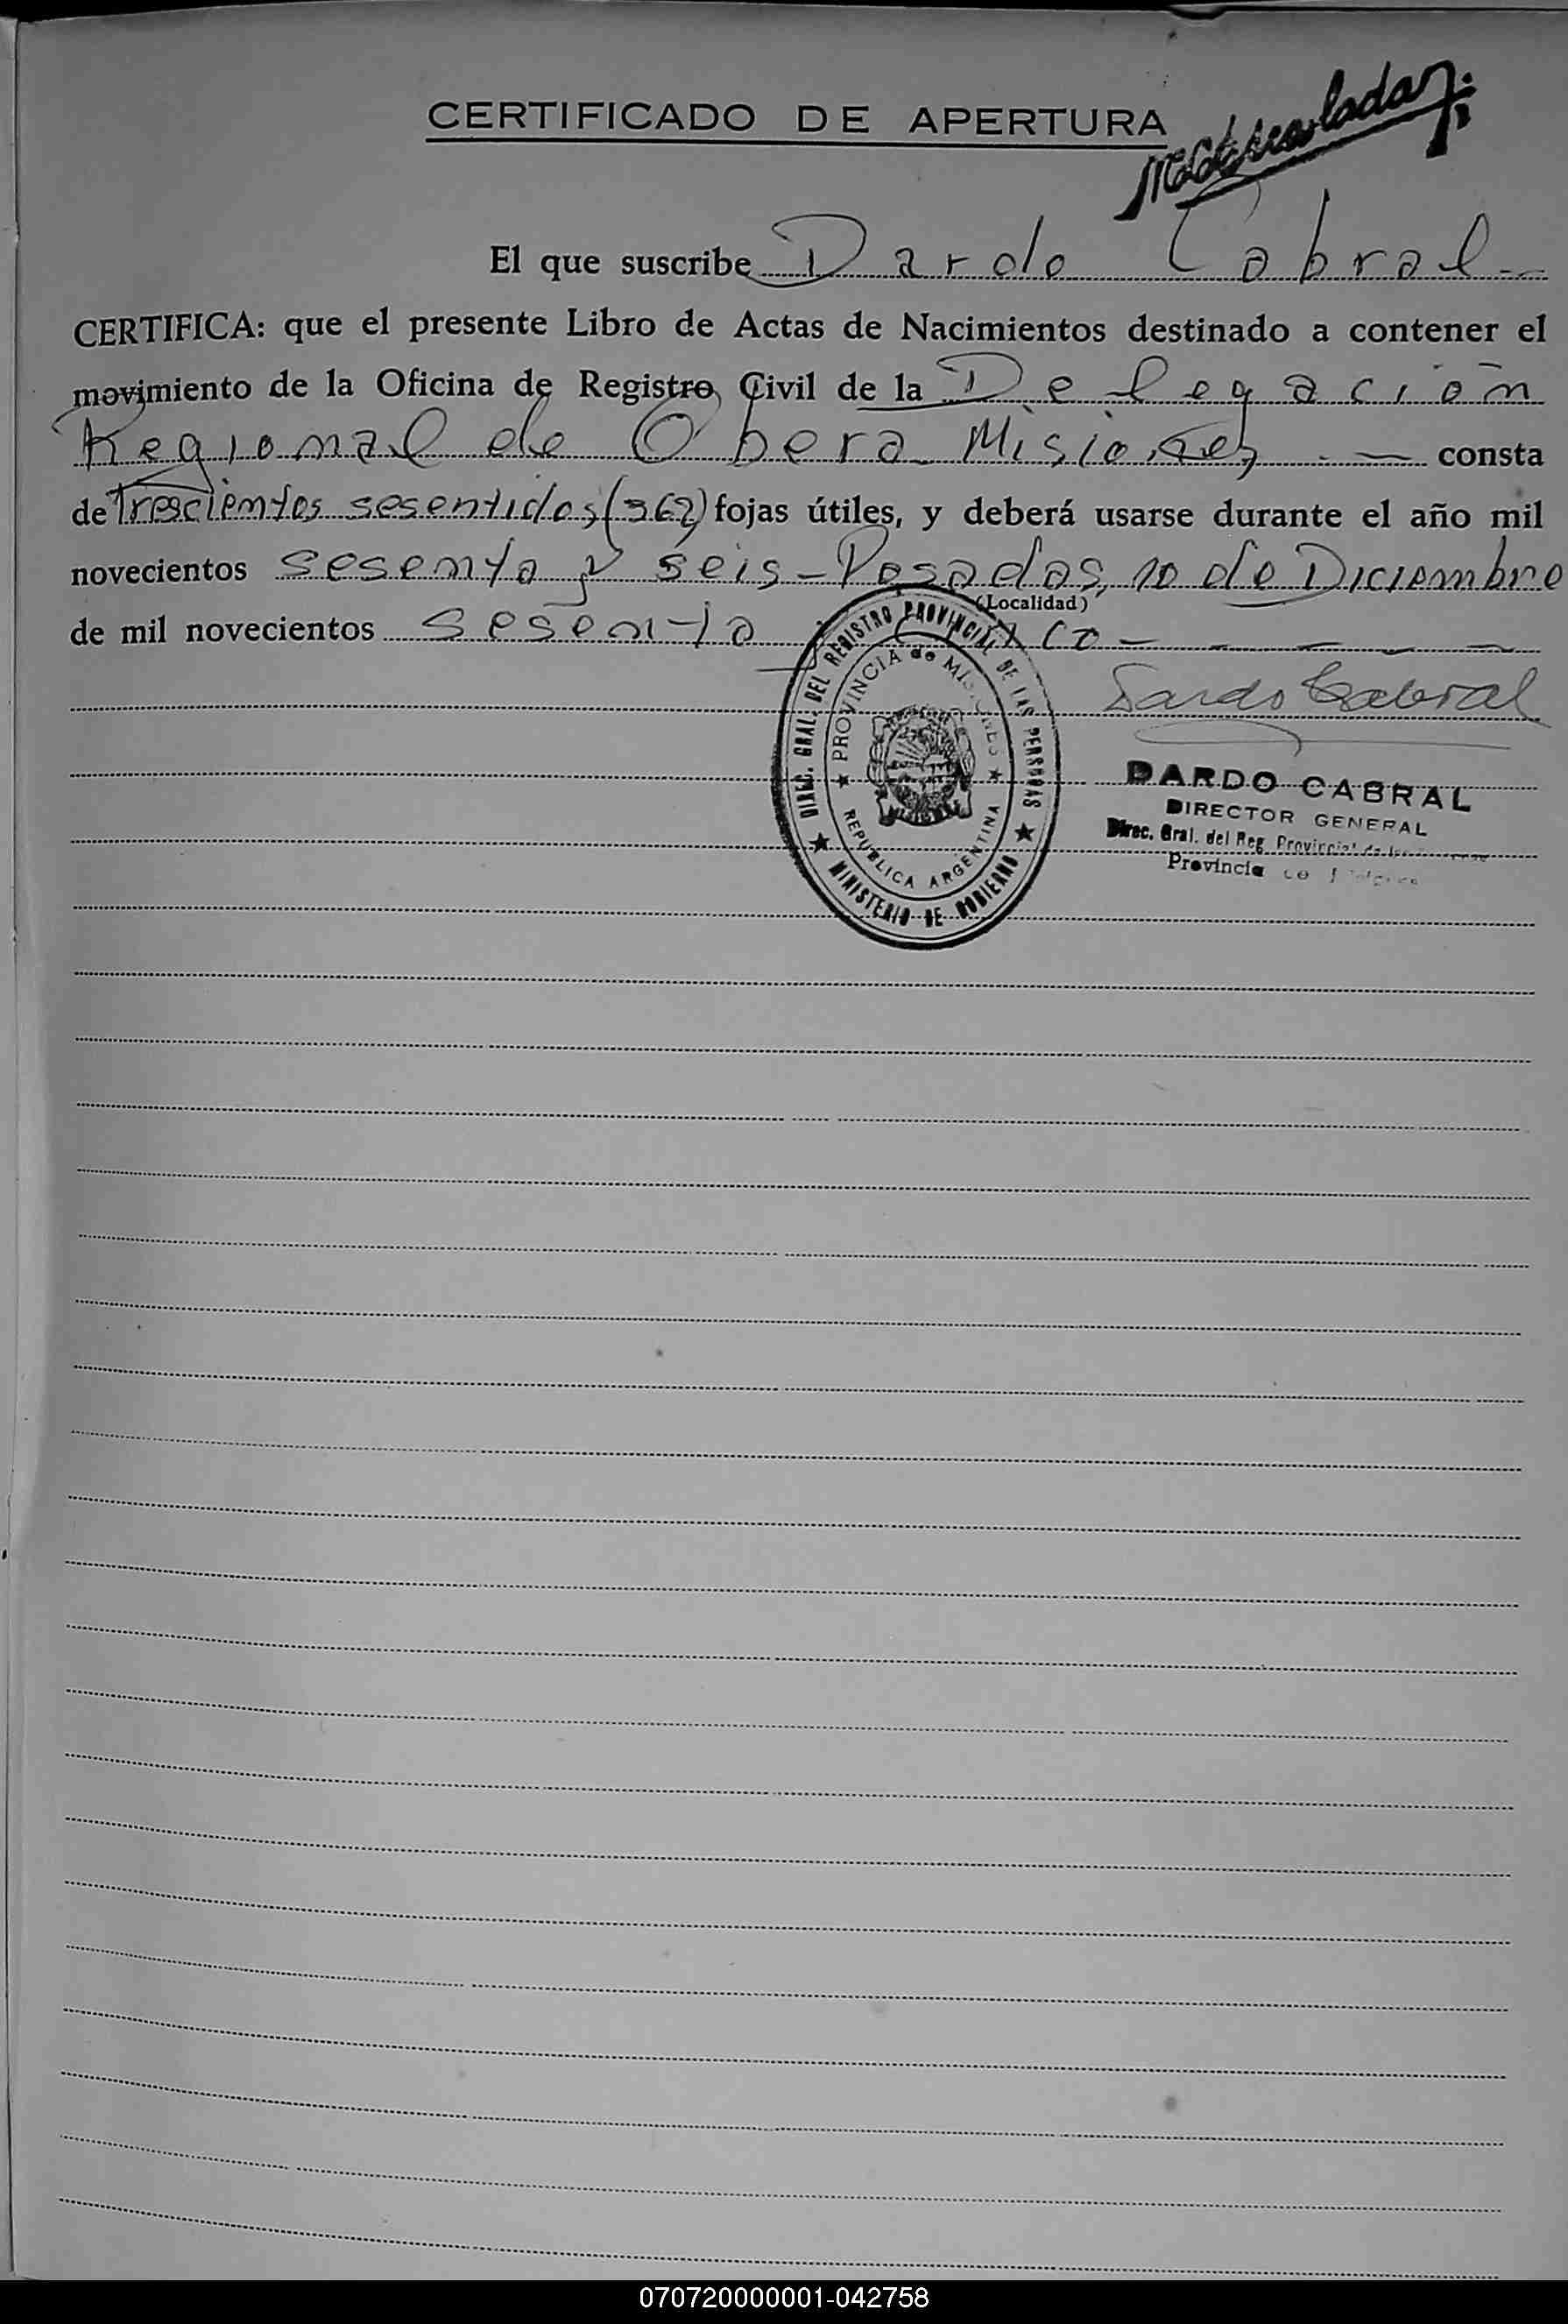 CERTIFICADO DE APERTURA
El que suscribe Dardo Cabral
CERTIFICA: que el presente Libro de Actas de Nacimientos destinado a contener el
movimiento de la Oficina de Registro Civil de la Delegación
Regional de Obera Misiones consta
de Trescientos sesentidos (362) fojas útiles, y deberá usarse durante el año mil
novecientos sesenta y seis - Posadas, 10 de Diciembre
(Localidad)
de mil novecientos sesenta
Dardo Cabral
DIREC. GRAL. DEL REGISTRO PROVINCIAL DE LAS PERSONAS
★ MINISTERIO DE GOBIERNO ★
★ PROVINCIA de MISIONES ★
REPUBLICA ARGENTINA
DARDO CABRAL
DIRECTOR GENERAL
Direc. Gral. del Reg. Provincial de las
Provincia
070720000001-042758